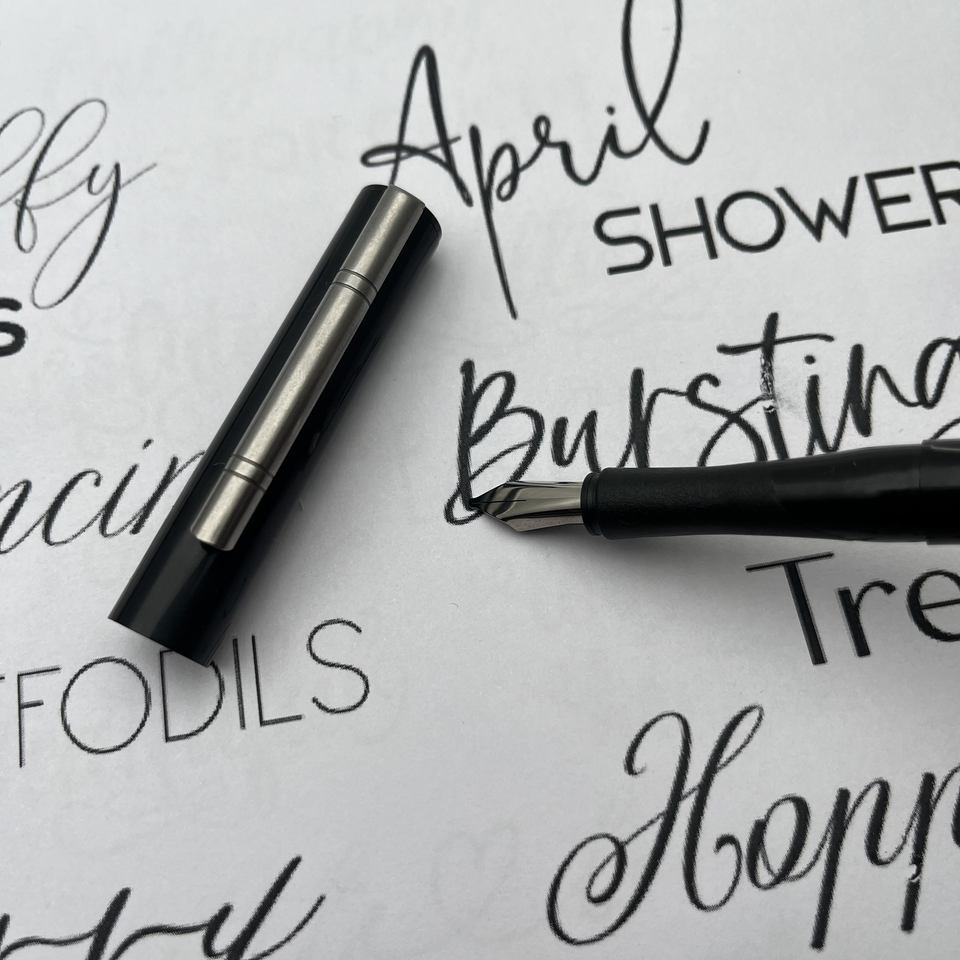 April
SHOWER
ffy
s
Bursting
ncin
Tre
FFODILS
Hopp